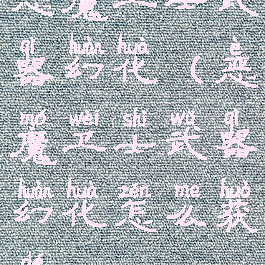 恶魔卫士武
qì huàn huà è
器幻化（恶
mó wèi shì wǔ qì
魔卫士武器
huàn huà zěn me huò
幻化怎么获
dé